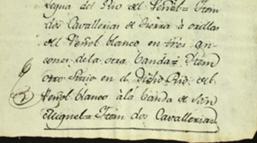 legua del Rio del Peñol= Ytem
dos Cavallerias de tierra à orillas
del Peñol blanco en tres an-
cones de la otra banda= Ytem
otro Sitio en el dicho Rio del
Peñol blanco à la banda de Sn
Miguel= Ytem dos Cavallerias